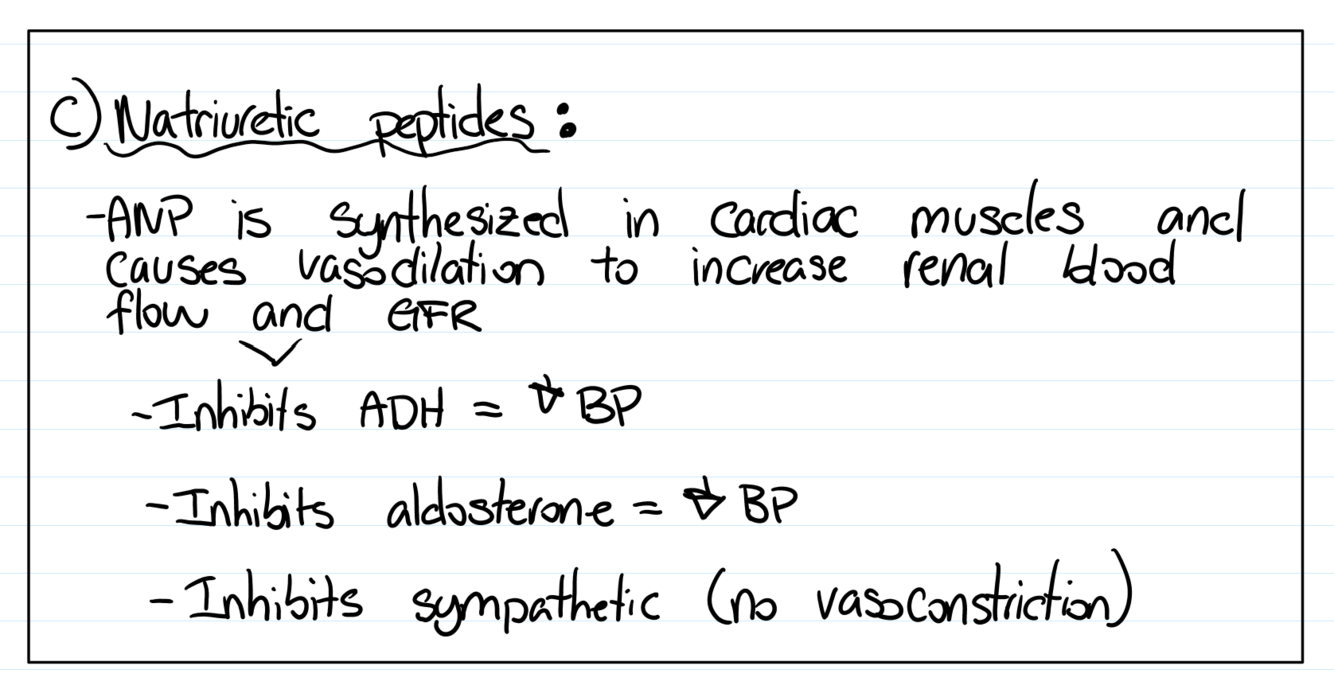 C) Natriuretic peptides:
-ANP is synthesized in cardiac muscles and
causes vasodilation to increase renal blood
flow and GFR
-Inhibits ADH = ↓ BP
-Inhibits aldosterone = ↓ BP
-Inhibits sympathetic (no vasoconstriction)